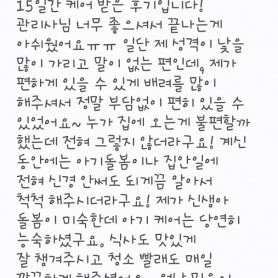 15일간 케어 받은 후기입니다!
관리사님 너무 좋으셔서 끝나는게
아쉬웠어요ㅠㅠ 일단 제 성격이 낯을
많이 가리고 말이 없는 편인데, 제가
편하게 있을 수 있게 배려를 많이
해주셔서 정말 부담없이 편히 있을 수
있었어요~ 누가 집에 오는게 불편할까
했는데 전혀 그렇지 않더라구요! 계신
동안에는 아기돌봄이나 집안일에
전혀 신경 안써도 되게끔 알아서
척척 해주시더라구요! 제가 신생아
돌봄이 미숙한데 아기 케어는 당연히
능숙하셨구요, 식사도 맛있게
잘 챙겨주시고 청소 빨래도 매일